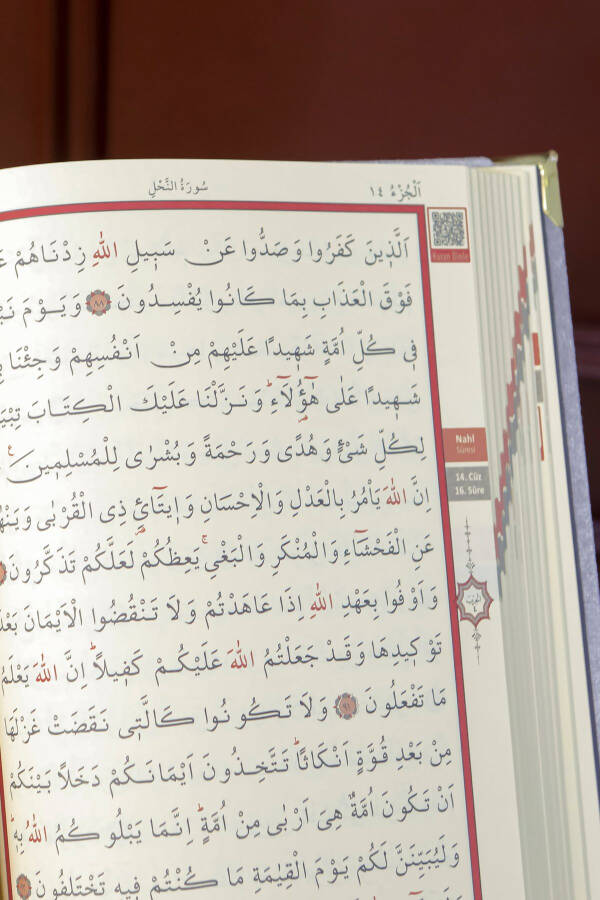 سُورَةُ النَّحْلِ
اَلْجُزْءُ ١٤
اَلَّذ۪ينَ كَفَرُوا وَصَدُّوا عَنْ سَب۪يلِ اللّٰهِ زِدْنَاهُمْ
فَوْقَ الْعَذَابِ بِمَا كَانُوا يُفْسِدُونَ ﴿٨٨﴾ وَيَوْمَ
ف۪ي كُلِّ اُمَّةٍ شَه۪يدًا عَلَيْهِمْ مِنْ اَنْفُسِهِمْ وَجِئْنَا
شَه۪يدًا عَلٰى هٰٓؤُ۬لَٓاءِۜ وَنَزَّلْنَا عَلَيْكَ الْكِتَابَ
لِكُلِّ شَيْءٍ وَهُدًى وَرَحْمَةً وَبُشْرٰى لِلْمُسْلِم۪ينَ۟
اِنَّ اللّٰهَ يَأْمُرُ بِالْعَدْلِ وَالْاِحْسَانِ وَا۪يتَٓائِ ذِي الْقُرْبٰى
عَنِ الْفَحْشَٓاءِ وَالْمُنْكَرِ وَالْبَغْيِۚ يَعِظُكُمْ لَعَلَّكُمْ تَذَكَّرُونَ
وَاَوْفُوا بِعَهْدِ اللّٰهِ اِذَا عَاهَدْتُمْ وَلَا تَنْقُضُوا الْاَيْمَانَ
تَوْك۪يدِهَا وَقَدْ جَعَلْتُمُ اللّٰهَ عَلَيْكُمْ كَف۪يلًاۜ اِنَّ اللّٰهَ يَعْلَمُ
مَا تَفْعَلُونَ ﴿٩١﴾ وَلَا تَكُونُوا كَالَّت۪ي نَقَضَتْ غَزْلَهَا
مِنْ بَعْدِ قُوَّةٍ اَنْكَاثًاۜ تَتَّخِذُونَ اَيْمَانَكُمْ دَخَلًا بَيْنَكُمْ
اَنْ تَكُونَ اُمَّةٌ هِيَ اَرْبٰى مِنْ اُمَّةٍۜ اِنَّمَا يَبْلُوكُمُ اللّٰهُ بِه۪ۜ
وَلَيُبَيِّنَنَّ لَكُمْ يَوْمَ الْقِيٰمَةِ مَا كُنْتُمْ ف۪يهِ تَخْتَلِفُونَ
Nahl
Sûresi
14. Cüz
16. Sûre